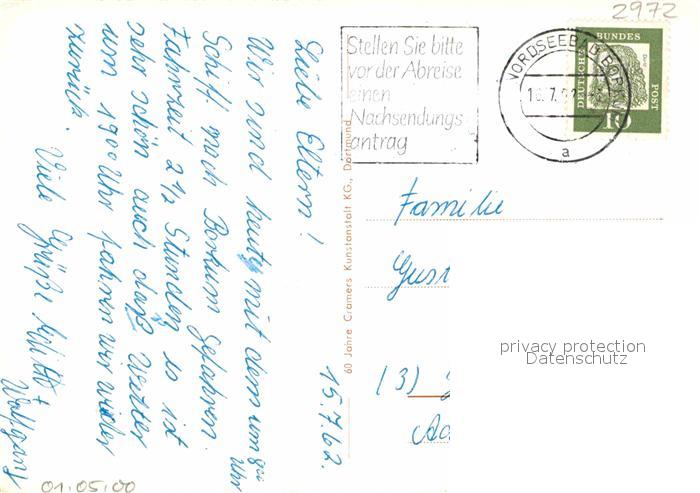 2972
Stellen Sie bitte
vor der Abreise
einen
Nachsendungs
antrag
NORDSEEBAD BORKUM
16.7.62
a
DEUTSCHE BUNDES POST
10
Liebe Eltern!
15.7.62.
Wir sind heute mit dem um 8⁰⁰ Uhr
Schiff nach Borkum gefahren.
Fahrzeit 2 1/2 Stunden, es ist
sehr schön auch das Wetter
um 19⁰⁰ Uhr fahren wir wieder
zurück. Viele Grüße
Wolfgang
60 Jahre Cramers Kunstanstalt KG., Dortmund
Familie
Gust
(3)
privacy protection
Datenschutz
01.05.00